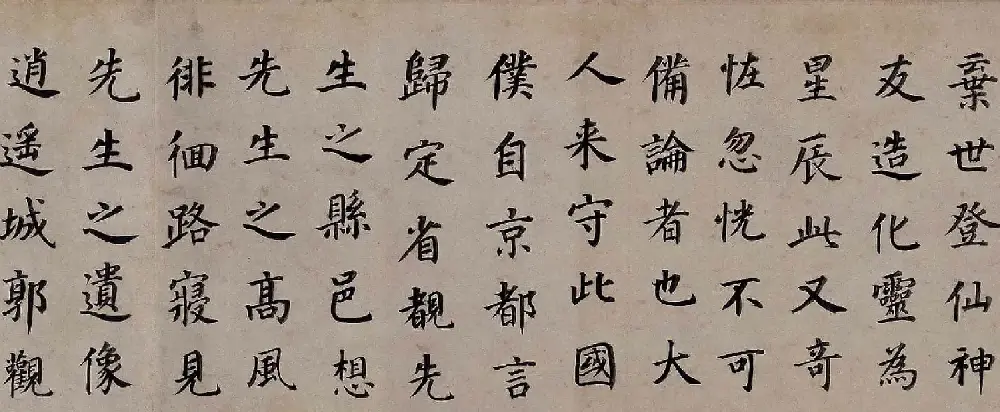 棄世登仙神
友造化靈為
星辰此又奇
恠忽恍不可
備論者也大
人来守此國
僕自京都言
歸定省覩先
生之縣邑想
先生之高風
徘徊路寢見
先生之遺像
逍遥城郭觀